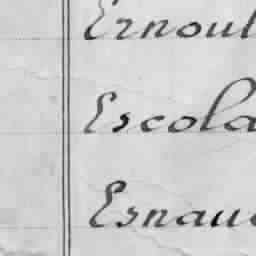 Ernoul
Escola
Esnau